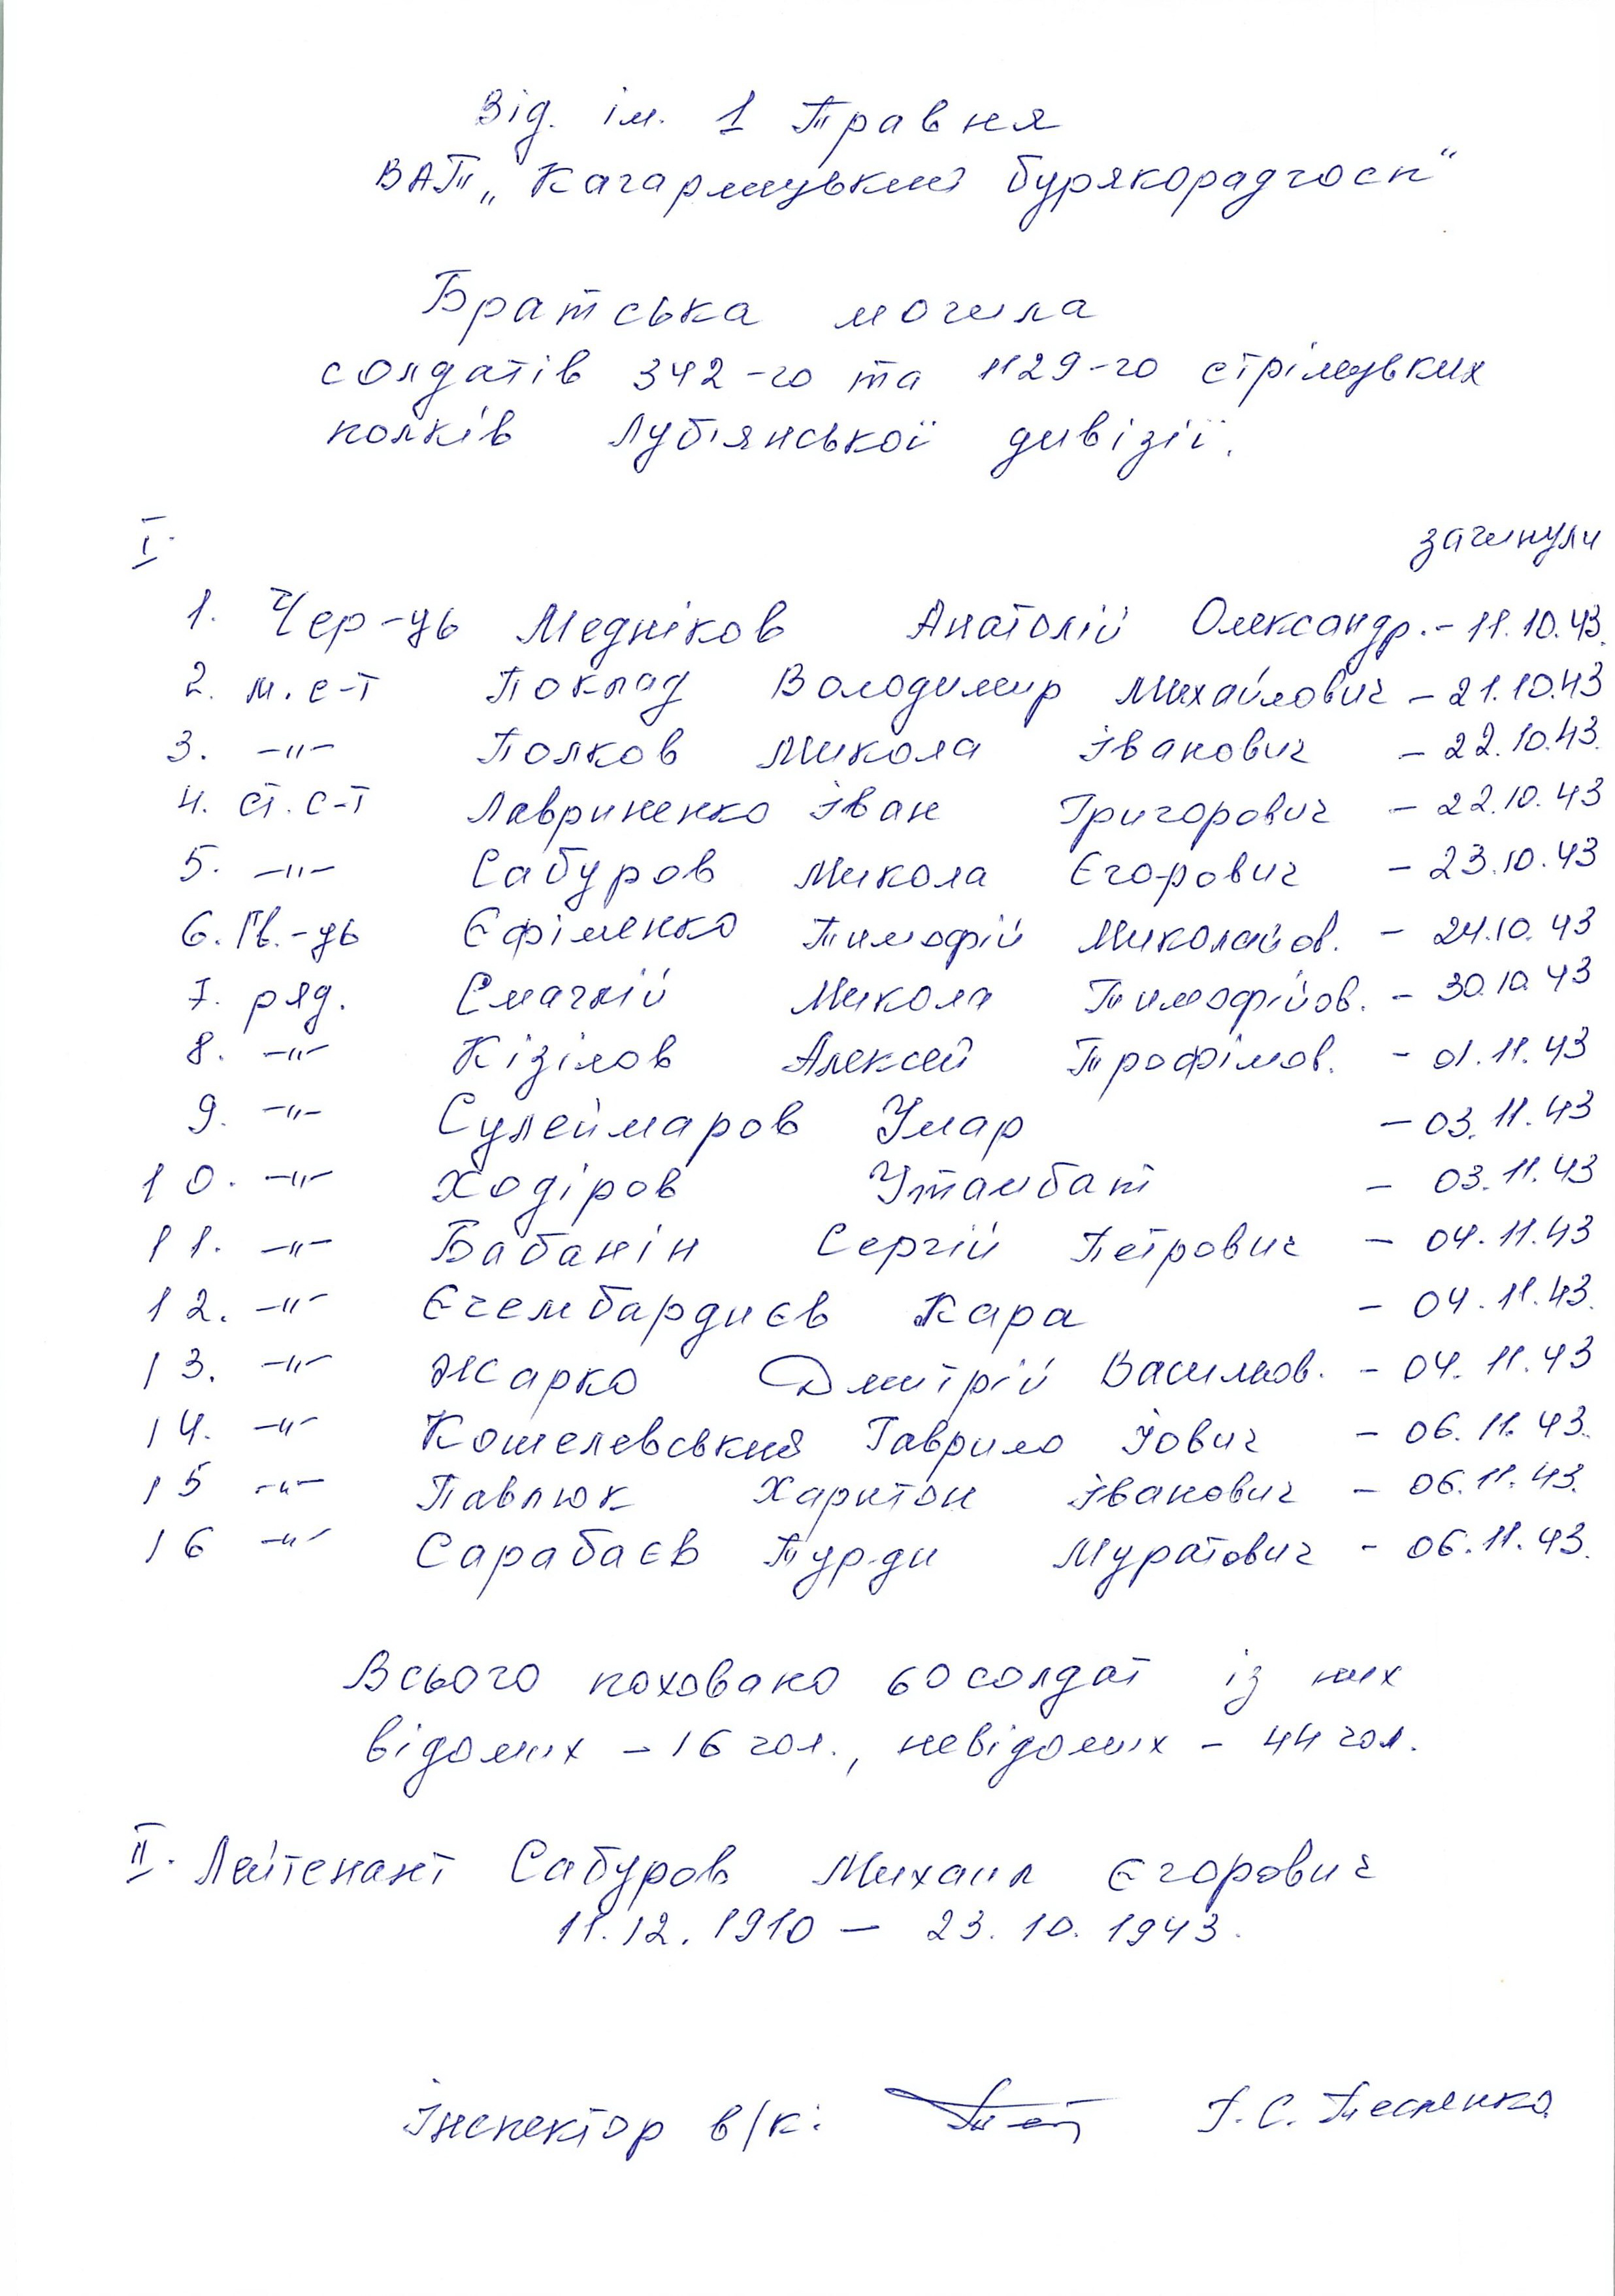 Від. ім. 1 Травня
ВАТ „Кагарлицький бурякорадгосп“
Братська могила
солдатів 342-го та 1129-го стрілецьких
полків Луб'янської дивізії.
I. загинули
1. Чер-ць Медніков Анатолій Олександр. - 11.10.43.
2. м. с-т Поклад Володимир Михайлович - 21.10.43
3. -"- Полков Микола Іванович - 22.10.43.
4. ст. с-т Лавриненко Іван Григорович - 22.10.43
5. -"- Сабуров Микола Єгорович - 23.10.43
6. Гв.-ць Єфіменко Тимофій Миколайов. - 24.10.43
7. ряд. Смаглій Микола Тимофійов. - 30.10.43
8. -"- Кізілов Алексей Трофімов. - 01.11.43
9. -"- Сулеймаров Умар - 03.11.43
10. -"- Ходіров Утамбат - 03.11.43
11. -"- Бабанін Сергій Петрович - 04.11.43
12. -"- Єгембардиєв Кара - 04.11.43.
13. -"- Жарко Дмитрій Васильов. - 04.11.43
14. -"- Кошелевський Гаврило Іович - 06.11.43.
15 -"- Павлюк Харитон Іванович - 06.11.43.
16 -"- Сарабаєв Турди Муратович - 06.11.43.
Всього поховано 60 солдат із них
відомих - 16 чол., невідомих - 44 чол.
II. Лейтенант Сабуров Михаил Єгорович
11.12.1910 - 23.10.1943.
Інспектор в/к: Г. С. Тесленко